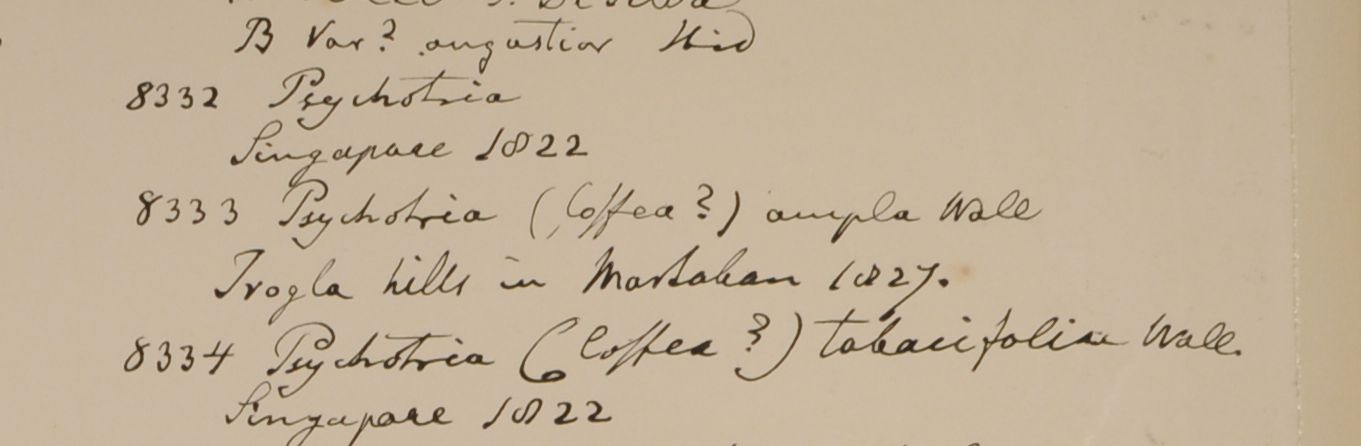 B Var? angustior Ibid
8332 Psychotria
Singapore 1822
8333 Psychotria (Coffea?) ampla Wall
Trogla hills in Martaban 1827.
8334 Psychotria (Coffea?) tabacifolia Wall.
Singapore 1822